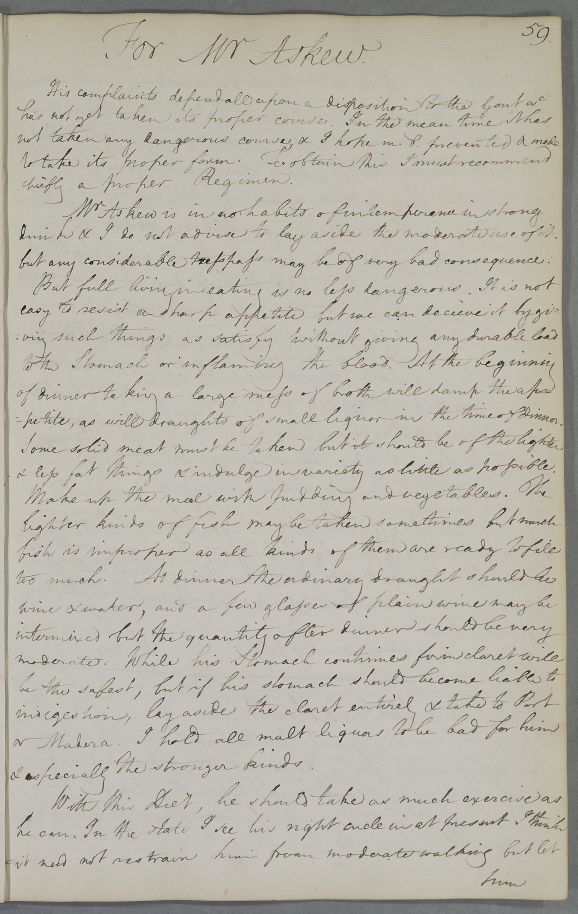 59.
For Mr Askew.
His complaints depend all upon a disposition to the Gout wc
has not yet taken its proper course. In the mean time it has
not taken any dangerous course, & I hope m. b. prevented & made
to take its proper form. To obtain this I must recommend
chiefly a proper Regimen.
Mr Askew is in no habits of intemperance in strong
drink & I do not advise to lay aside the moderate use of it.
but any considerable trespass may be of very bad consequence.
But full living in eating is no less dangerous. It is not
easy to resist a sharp appetite but we can decieve it by gi-
:ving such things as satisfy without giving any durable load
to the Stomach or inflaming the blood. At the beginning
of dinner taking a large mess of broth will damp the ap-
-petite, as will draughts of small liquor in the time of Dinner.
Some solid meat must be taken but it should be of the lighter
& less fat things & indulge in variety as little as possible.
Make up the meal with pudding and vegetables. The
lighter kinds of fish may be taken sometimes but much
fish is improper as all kinds of them are ready to fill
too much. At dinner the ordinary draught should be
wine & water, and a few glasses of plain wine may be
intermixed but the quantity after dinner should be very
moderate. While his Stomach continues firm claret will
be the safest, but if his stomach should become liable to
indigestion, lay aside the claret entirely & take to Port
or Madera. I hold all malt liquors to be bad for him
& especially the stronger kinds.
With this Diet, he should take as much exercise as
he can. In the state I see his right ancle in at present I think
it need not restrain him from moderate walking but let
him